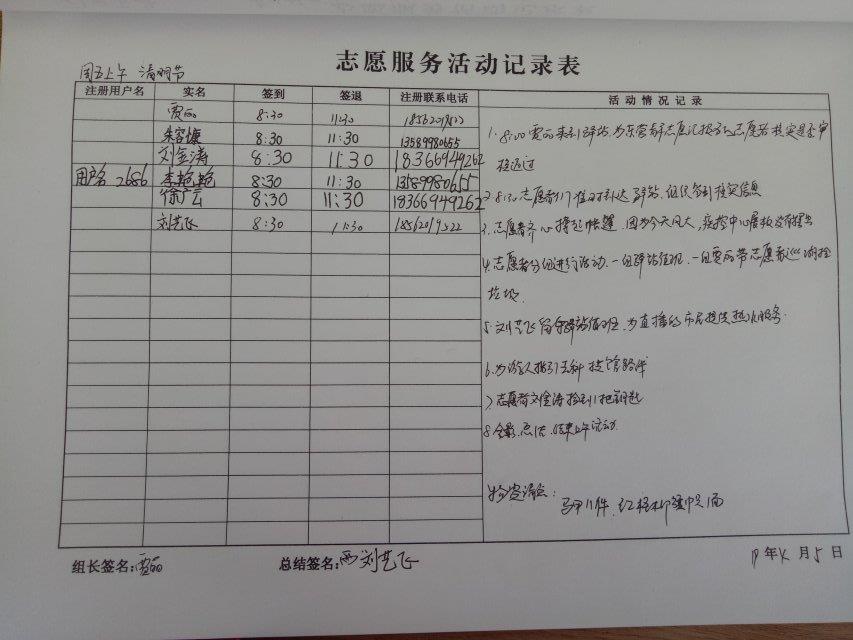 志愿服务活动记录表
周五上午 清明节
注册用户名 实名 签到 签退 注册联系电话 活动情况记录
贾丽 8:30 11:30
朱容慷 8:30 11:30 13589980655
刘金涛 8:30 11:30 18366949262
用户名 2686 李艳艳 8:30 11:30 13589980655
徐广云 8:30 11:30 18366949262
刘艺飞 8:30 11:30
1. 8:00 贾丽来到驿站,为东营市志愿汇报名的志愿者核实是否审
核通过
2. 8:30志愿者们准时到达驿站,组织签到核实信息
3. 志愿者齐心撑起帐篷,因为今天风大,疾控中心展板没有摆出
4. 志愿者分组进行活动.一组驿站值班.一组贾丽带志愿者巡湖捡
垃圾.
5. 刘艺飞留守驿站值班,为直播的市民提供热水服务.
6. 为游人指引去科技馆路线
7. 志愿者刘金涛捡到1把钥匙
8. 合影.总结.结束上午活动.
物资清点: 马甲11件,红格
组长签名:贾丽 总结签名: 刘艺飞 19年4月5日